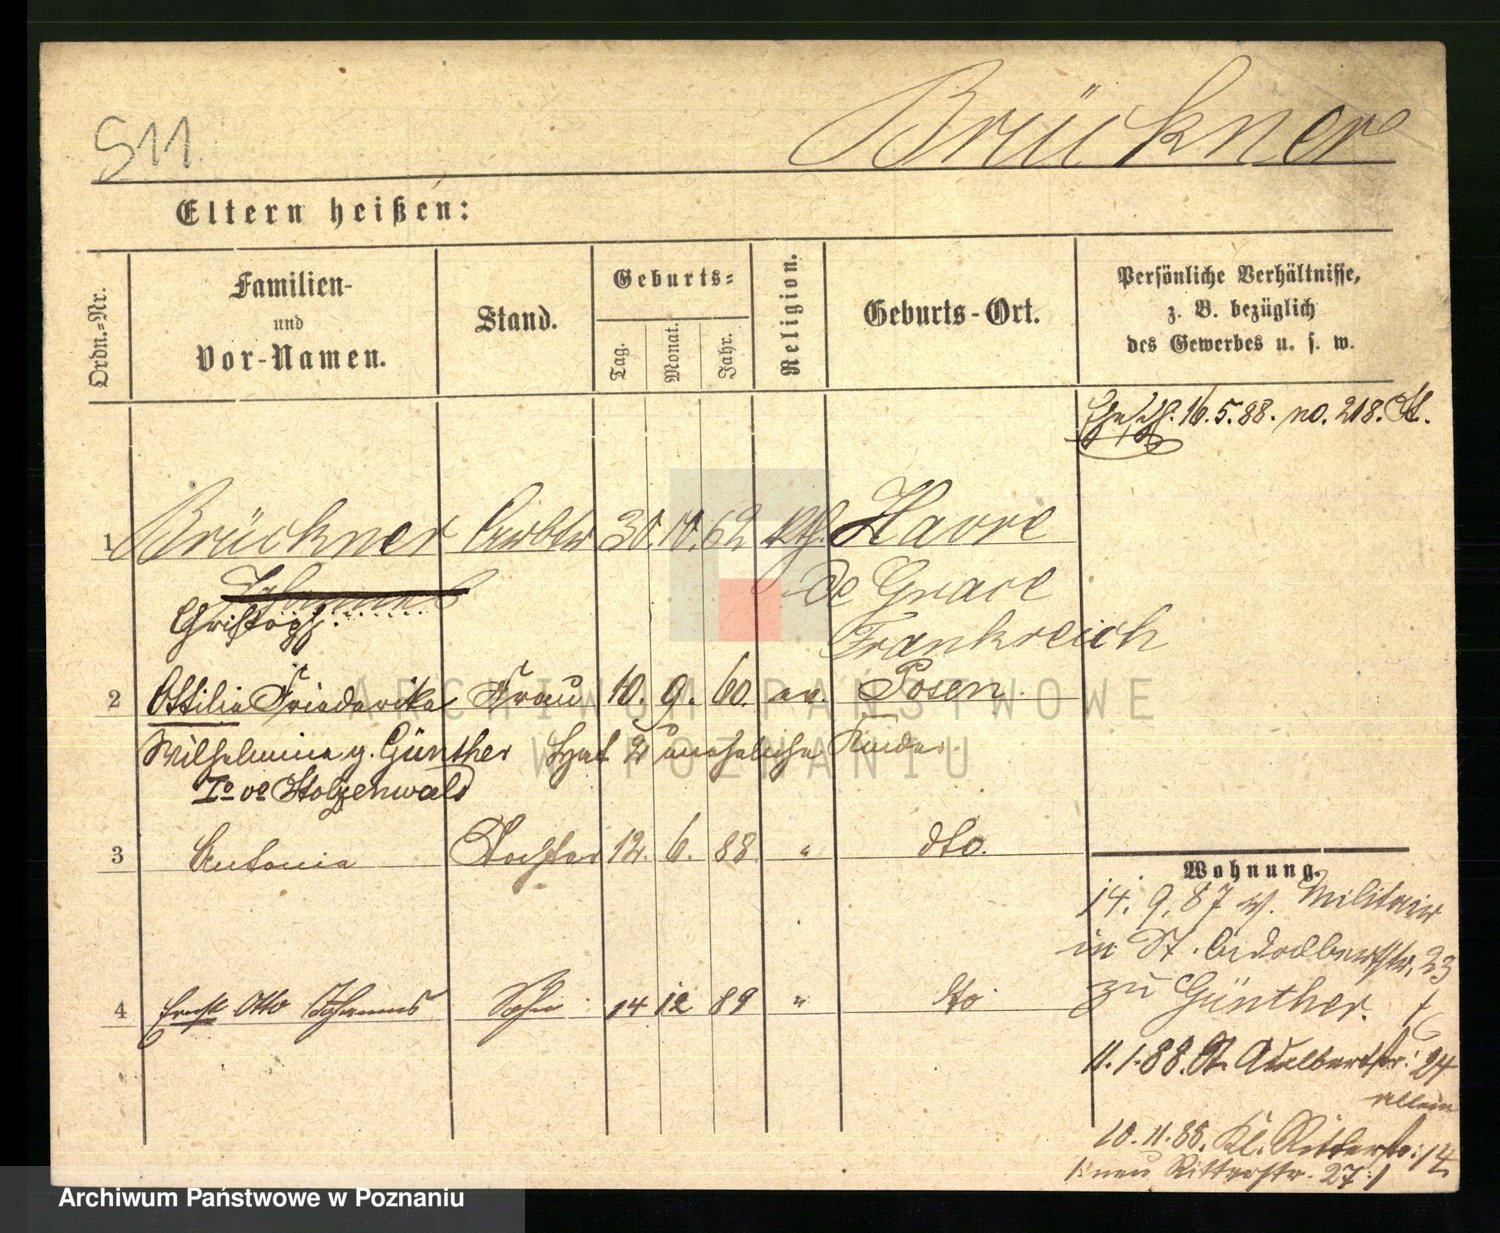 S11
Brückner
Eltern heißen:
Ordn.-Nr.
Familien-
und
Vor-Namen.
Stand.
Geburts-
Tag.
Monat.
Jahr.
Religion.
Geburts-Ort.
Persönliche Verhältnisse,
z. B. bezüglich
des Gewerbes u. s. w.
16.5.88. no. 218. St.
1 Brückner Arbtr 30. 10. 62 kth. Havre
de Grace
Frankreich
2 Ottilie Friederika Frau 10. 9. 60. ev. Posen.
Wilhelmine g. Günther hat 2 uneheliche Kinder.
Io vo Stolzenwald
3 Antonie Tochter 12. 6. 88 " dto.
4 Ernst Otto Johannes Sohn 14 12 89 " dto
Wohnung.
14. 9. 87 v. Militair
in St. Adalbertstr. 23
zu Günther.
11. 1. 88. St. Adalbertstr: 24
allein
10. 11. 88. Kl. Ritterstr: 14
neu Ritterstr. 27
ARCHIWUM PAŃSTWOWE
W POZNANIU
Archiwum Państwowe w Poznaniu